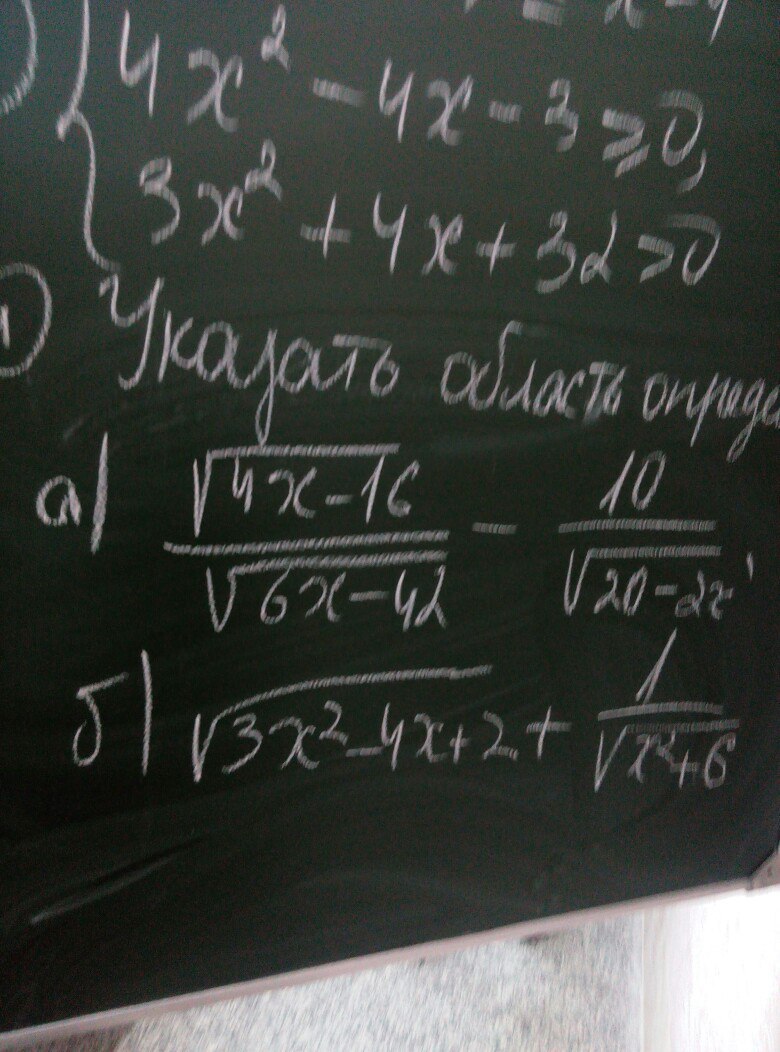 = x - 4
{ 4x² - 4x - 3 ≥ 0,
3x² + 4x + 32 > 0
Указать область
а) √(4x-16) / √(6x-42) - 10 / √(20-2x)
б) √(3x²-4x+2) + 1 / √(x²+6)